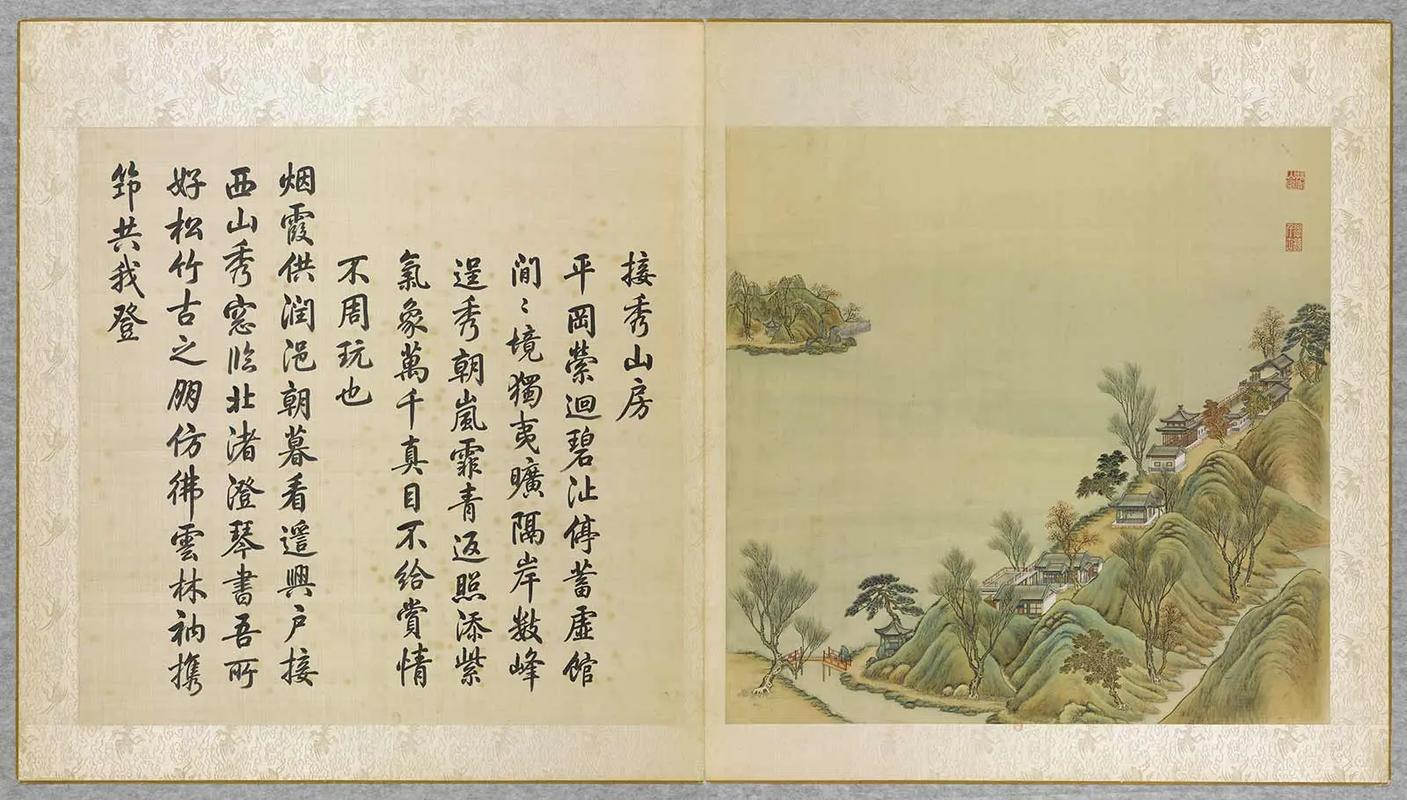 接秀山房
平岡縈迴碧沚停蓄虛館
閒〻境獨夷曠隔岸數峰
逞秀朝嵐霏青返照添紫
氣象萬千真目不給賞情
不周玩也
烟霞供潤浥朝暮看遥興戶接
西山秀窓臨北渚澄琴書吾所
好松竹古之朋仿彿雲林衲携
笻共我登